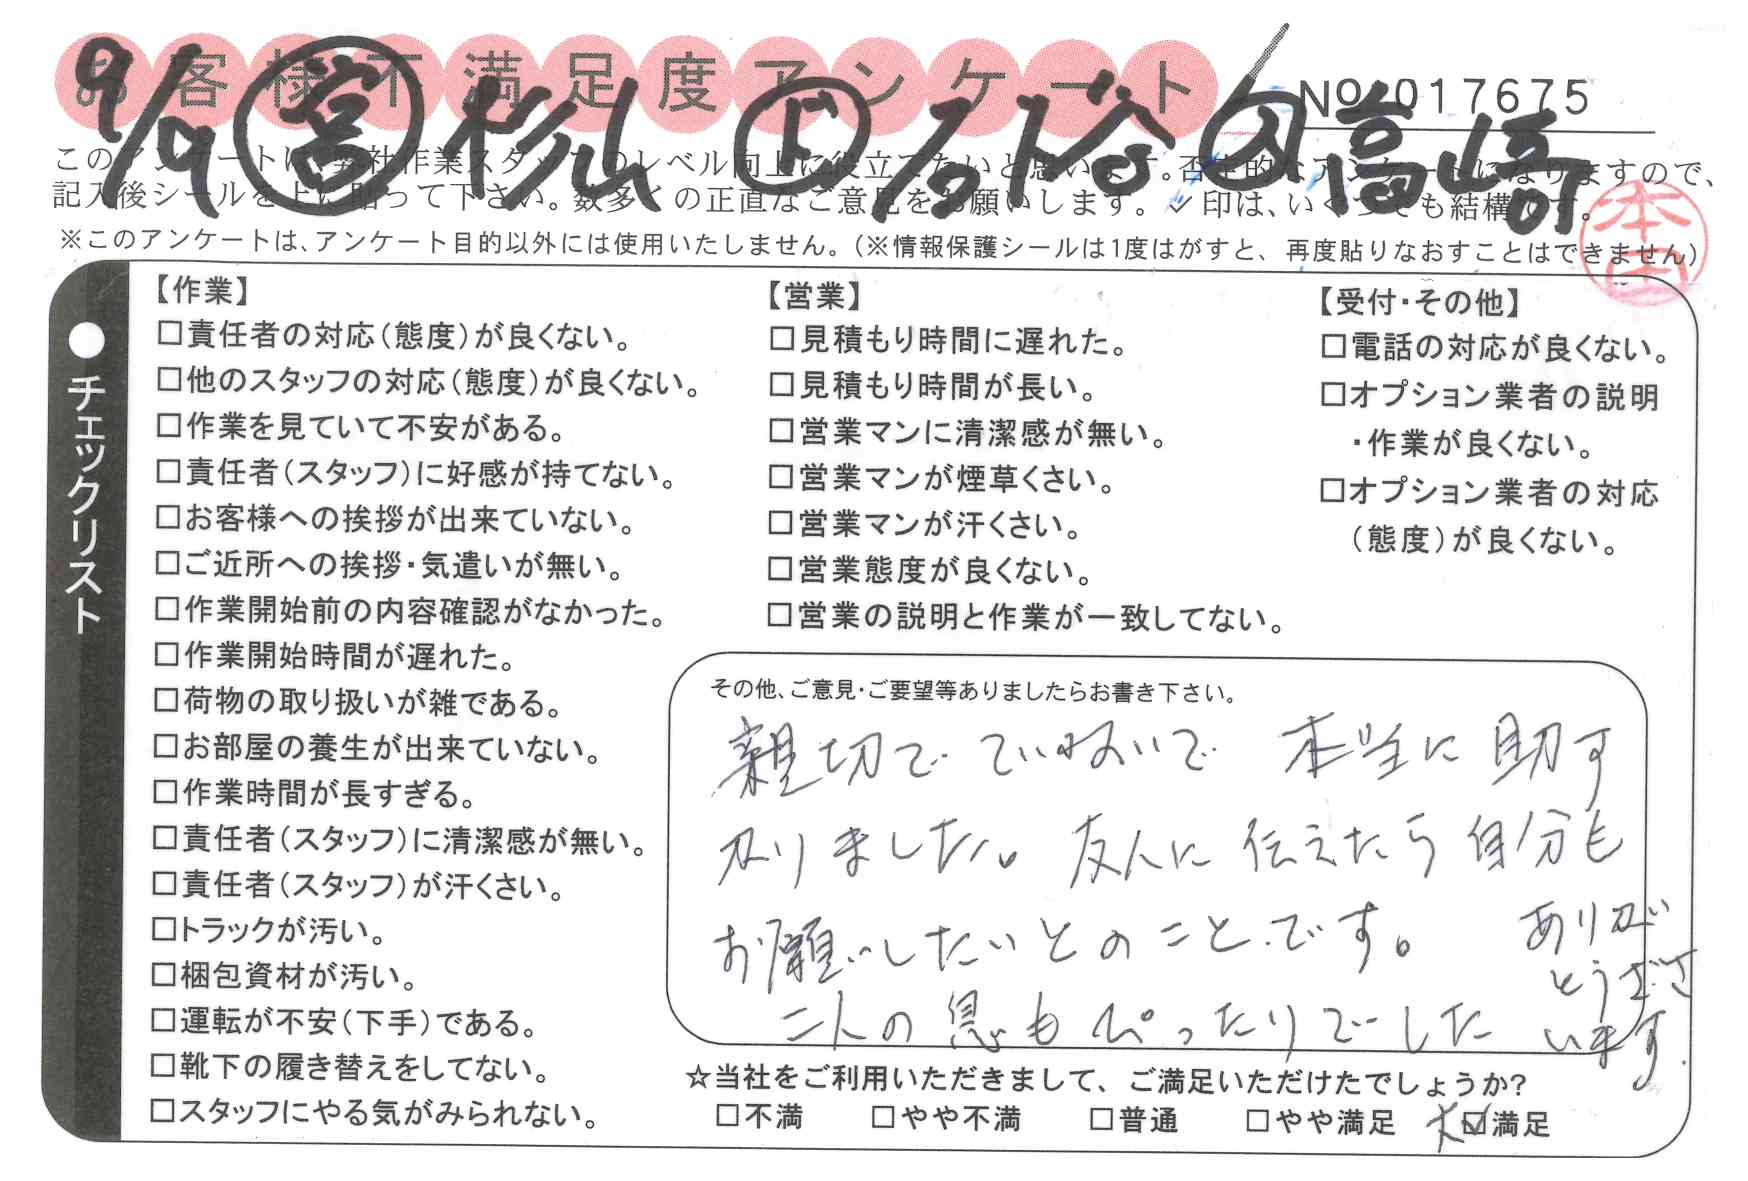 お客様不満足度アンケート
No 017675
9/9 営 杉山 ド 石下谷 メ 高崎
このアンケートは、弊社作業スタッフのレベル向上に役立てたいと思います。否定的なアンケートになりますので、
記入後シールを上に貼って下さい。数多くの正直なご意見をお願いします。✓印は、いくつでも結構です。
※このアンケートは、アンケート目的以外には使用いたしません。(※情報保護シールは1度はがすと、再度貼りなおすことはできません)
本田
●チェックリスト
【作業】
□責任者の対応(態度)が良くない。
□他のスタッフの対応(態度)が良くない。
□作業を見ていて不安がある。
□責任者(スタッフ)に好感が持てない。
□お客様への挨拶が出来ていない。
□ご近所への挨拶・気遣いが無い。
□作業開始前の内容確認がなかった。
□作業開始時間が遅れた。
□荷物の取り扱いが雑である。
□お部屋の養生が出来ていない。
□作業時間が長すぎる。
□責任者(スタッフ)に清潔感が無い。
□責任者(スタッフ)が汗くさい。
□トラックが汚い。
□梱包資材が汚い。
□運転が不安(下手)である。
□靴下の履き替えをしてない。
□スタッフにやる気がみられない。
【営業】
□見積もり時間に遅れた。
□見積もり時間が長い。
□営業マンに清潔感が無い。
□営業マンが煙草くさい。
□営業マンが汗くさい。
□営業態度が良くない。
□営業の説明と作業が一致してない。
【受付・その他】
□電話の対応が良くない。
□オプション業者の説明
・作業が良くない。
□オプション業者の対応
(態度)が良くない。
その他、ご意見・ご要望等ありましたらお書き下さい。
親切で ていねいで 本当に助す
かりました。友人に伝えたら自分も
お願いしたいとのことです。
二人の息もぴったりでした
ありが
とうござ
います.
☆当社をご利用いただきまして、ご満足いただけたでしょうか?
□不満 □やや不満 □普通 □やや満足 大☑満足